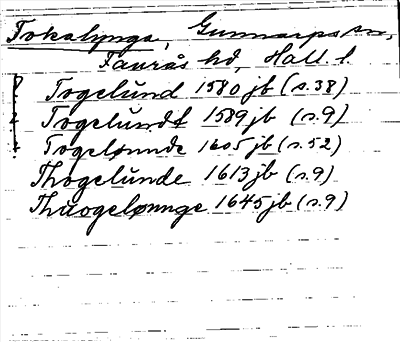 Tokalynga, Gunnarps sn,
Faurås hd, Hall. l.
Togelund 1580 jb (s. 38)
Togelundt 1589 jb (s. 9)
Togelønnde 1605 jb (s. 52)
Thogelunde 1613 jb (s. 9)
Thuogelønnge 1645 jb (s. 9)